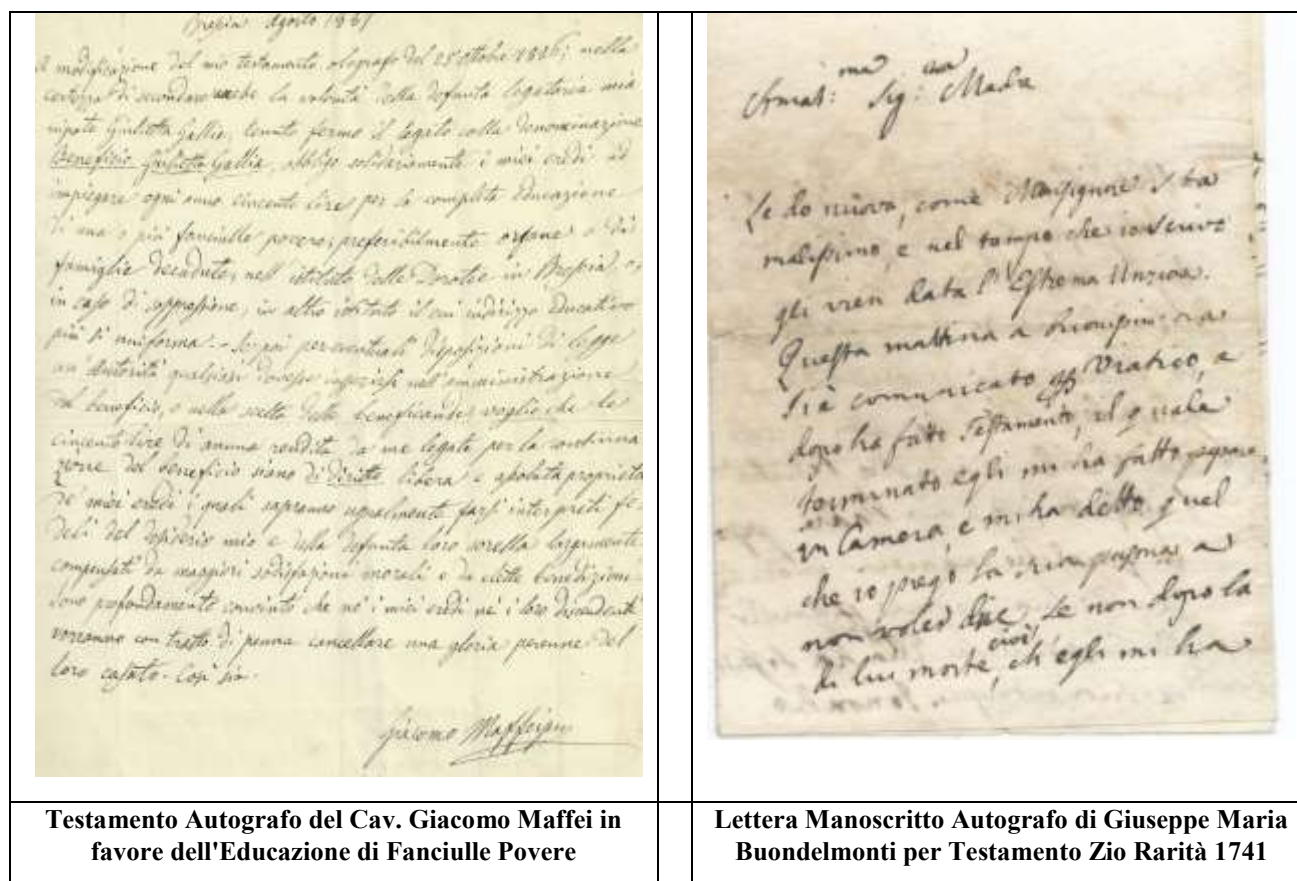 Brescia Agosto 1887
A modificazione del mio testamento olografo del 25 ottobre 1886; nella
certezza di secondare anche la volontà della defunta legataria mia
nipote Giulietta Gallia, tenuto fermo il legato colla denominazione
Beneficio Giulietta Gallia, obbligo solidariamente i miei eredi ad
impiegare ogni anno cincento lire per la completa educazione
di una o più fanciulle povere, preferibilmente orfane o di
famiglie decadute, nell'istituto delle Dorotee in Brescia o,
in caso di soppressione, in altro istituto il cui indirizzo educativo
più si uniforma. - Se poi per eventuali disposizioni di legge
un'Autorità qualsiasi dovesse ingerirsi nell'amministrazione
del beneficio, o nella scelta delle beneficande, voglio che le
cincento lire di annua rendita da me legate per la continua
zione del beneficio siano di diritto libera e assoluta proprietà
de' miei eredi i quali sapranno ugualmente farsi interpreti fe-
deli del desiderio mio e della defunta loro sorella largamente
compensati da maggiori sodisfazioni morali e da elette benedizioni.
Sono profondamente convinto che nè i miei eredi nè i loro discendenti
vorranno con tratto di penna cancellare una gloria perenne del
loro casato. Così sia.
Giacomo Maffei
Amat: ma Sig: ra Madre
Le do nuova, come Monsignore sta
malissimo, e nel tempo che io scrivo
gli vien data l'Estrema Unzione.
Questa mattina a
si è comunicato Viatico, e
dopo ha fatto Testamento, il quale
terminato egli mi ha fatto
in Camera, e mi ha detto quel
che io prego la sua persona a
non voler dire se non dopo la
di lui morte, cioè ch'egli mi ha
Testamento Autografo del Cav. Giacomo Maffei in
favore dell'Educazione di Fanciulle Povere
Lettera Manoscritto Autografo di Giuseppe Maria
Buondelmonti per Testamento Zio Rarità 1741